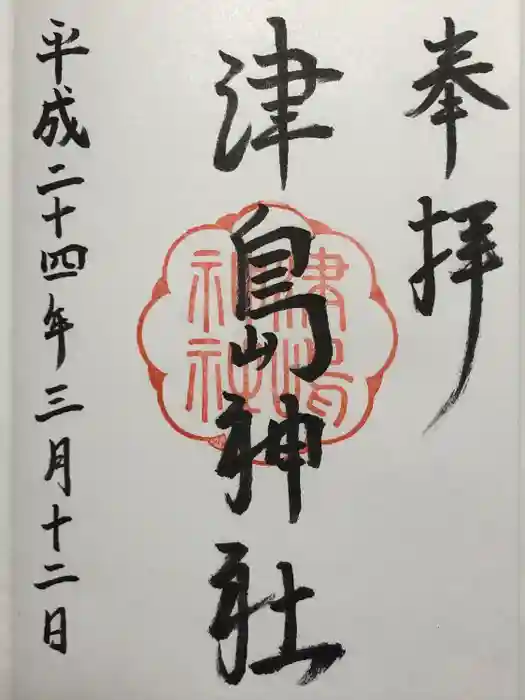 奉拝
津島神社
平成二十四年三月十二日
津島神社